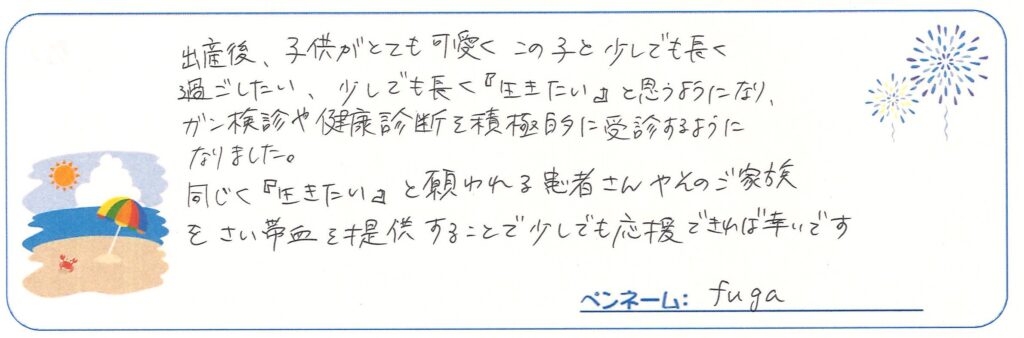 出産後、子供がとても可愛く この子と 少しでも長く
過ごしたい、少しでも長く『生きたい』と思うようになり、
ガン検診や健康診断を積極的に受診するように
なりました。
同じく『生きたい』と願われる患者さんやそのご家族
を さい帯血を提供することで少しでも応援できれば幸いです
ペンネーム: fuga